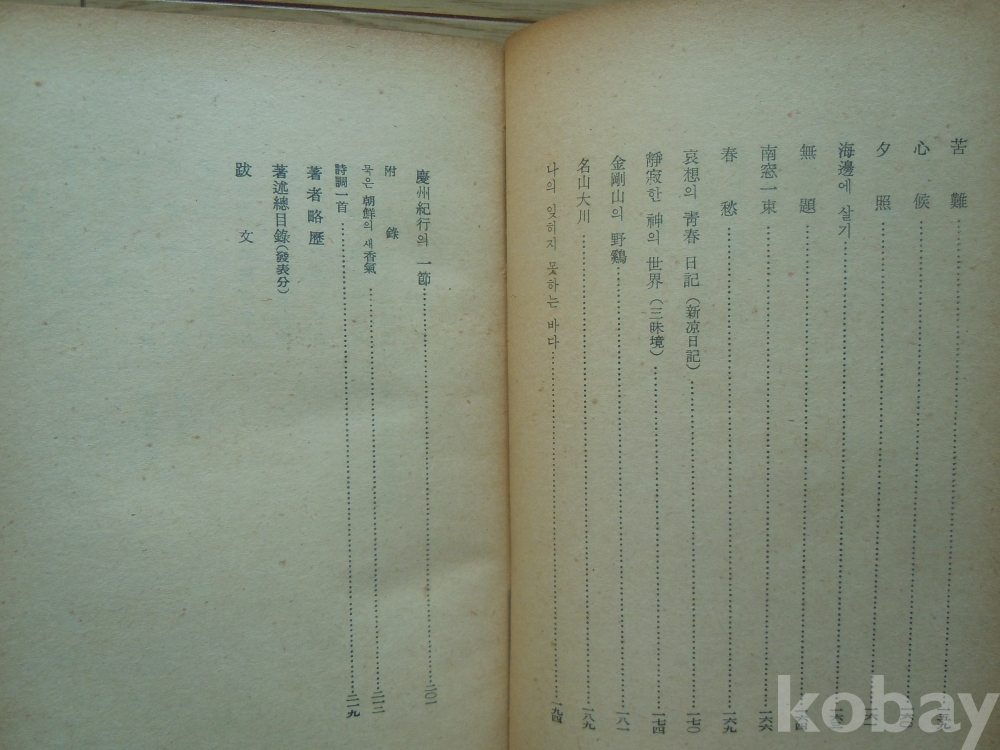 苦難……一五九
心候……一六〇
夕照……一六一
海邊에 살기……一六三
無題……一六四
南窓一束……一六六
春愁……一六九
哀想의 靑春 日記(新凉日記)……一七〇
靜寂한 神의 世界(三昧境)……一七四
金剛山의 野鷄……一八一
名山大川……一八九
나의 잊히지 못하는 바다……一九四
慶州紀行의 一節……二〇一
附錄
묵은 朝鮮의 새 香氣……二一三
詩調一首……二一九
著者略歷
著述總目錄(發表分)
跋文
kobay